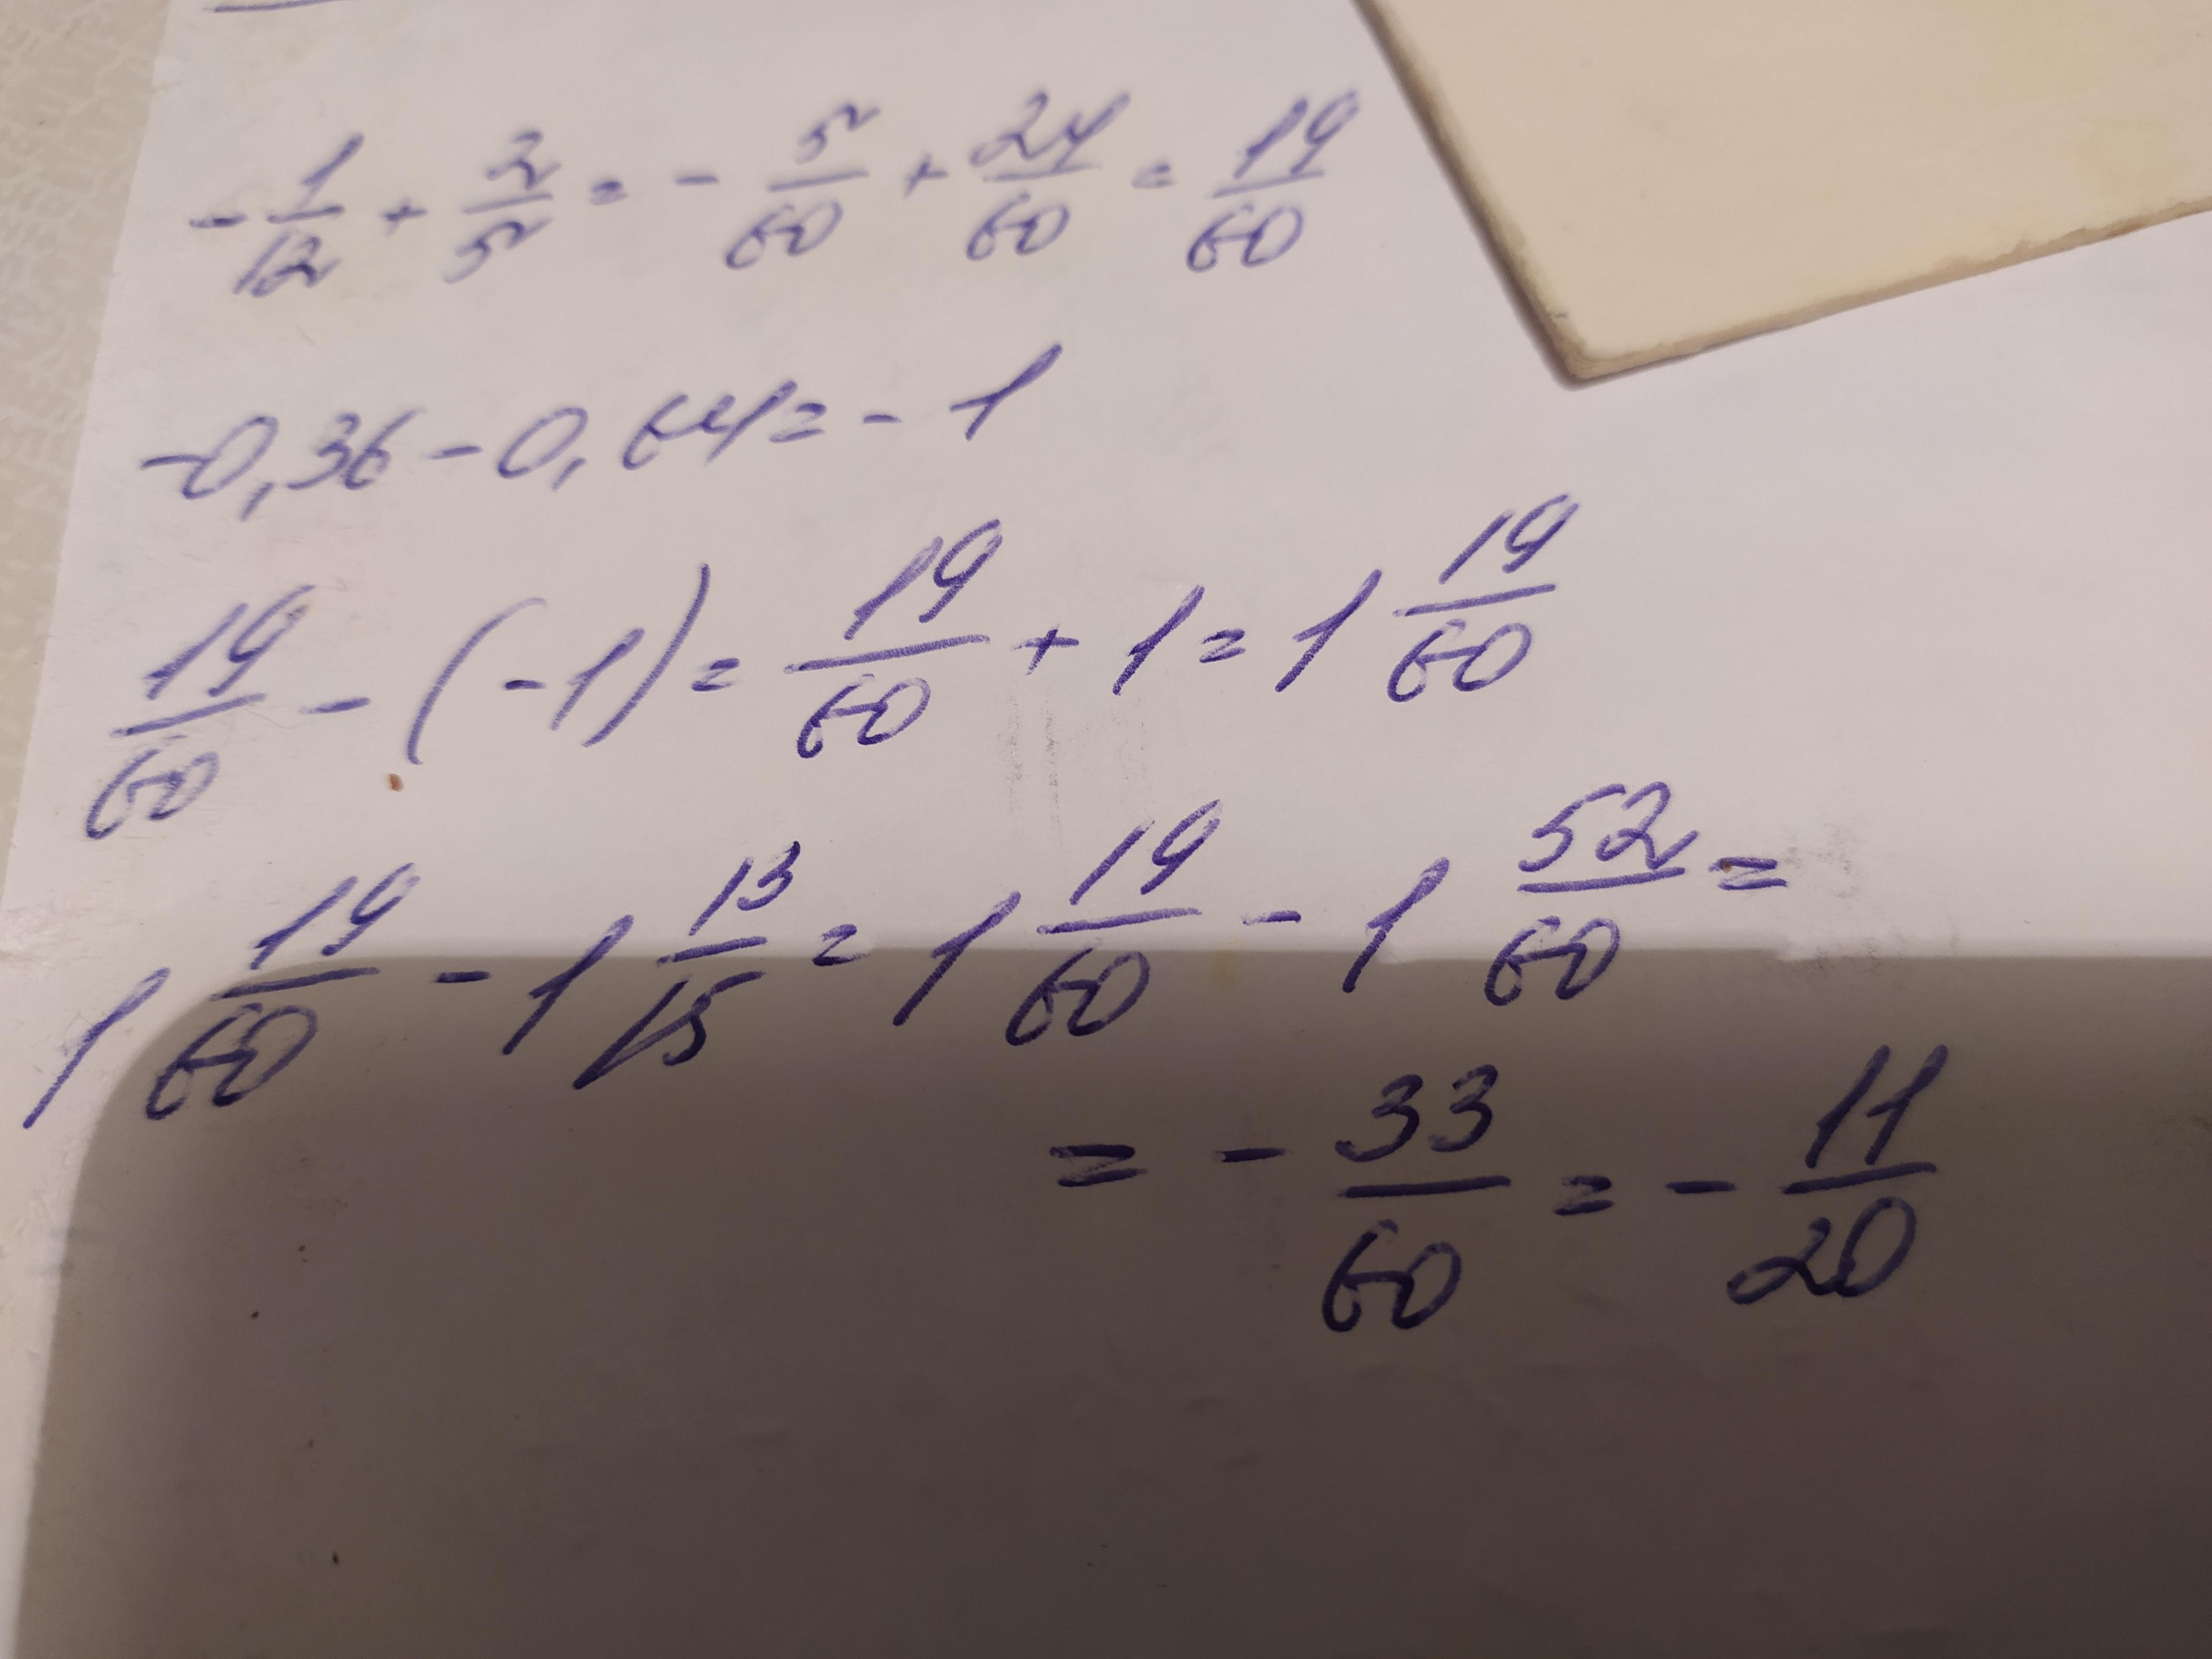 -1/12 + 2/5 = -5/60 + 24/60 = 19/60
-0,36 - 0,64 = -1
19/60 - (-1) = 19/60 + 1 = 1 19/60
1 19/60 - 1 13/15 = 1 19/60 - 1 52/60 =
= -33/60 = -11/20